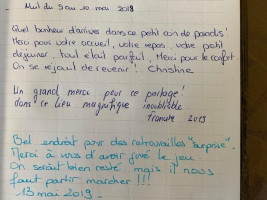 Nuit du 9 au 10 mai 2019
Quel bonheur d'arriver dans ce petit coin de paradis !
Merci pour votre accueil, votre repas, votre petit
déjeuner, tout était parfait. Merci pour le confort.
On se réjouit de revenir ! Christine
Un grand merci pour ce partage !
dans ce lieu magnifique inoubliable
2019
Bel endroit pour des retrouvailles "surprise".
Merci à vous d'avoir joué le jeu.
On serait bien resté mais il nous
faut partir marcher !!!
13 mai 2019.